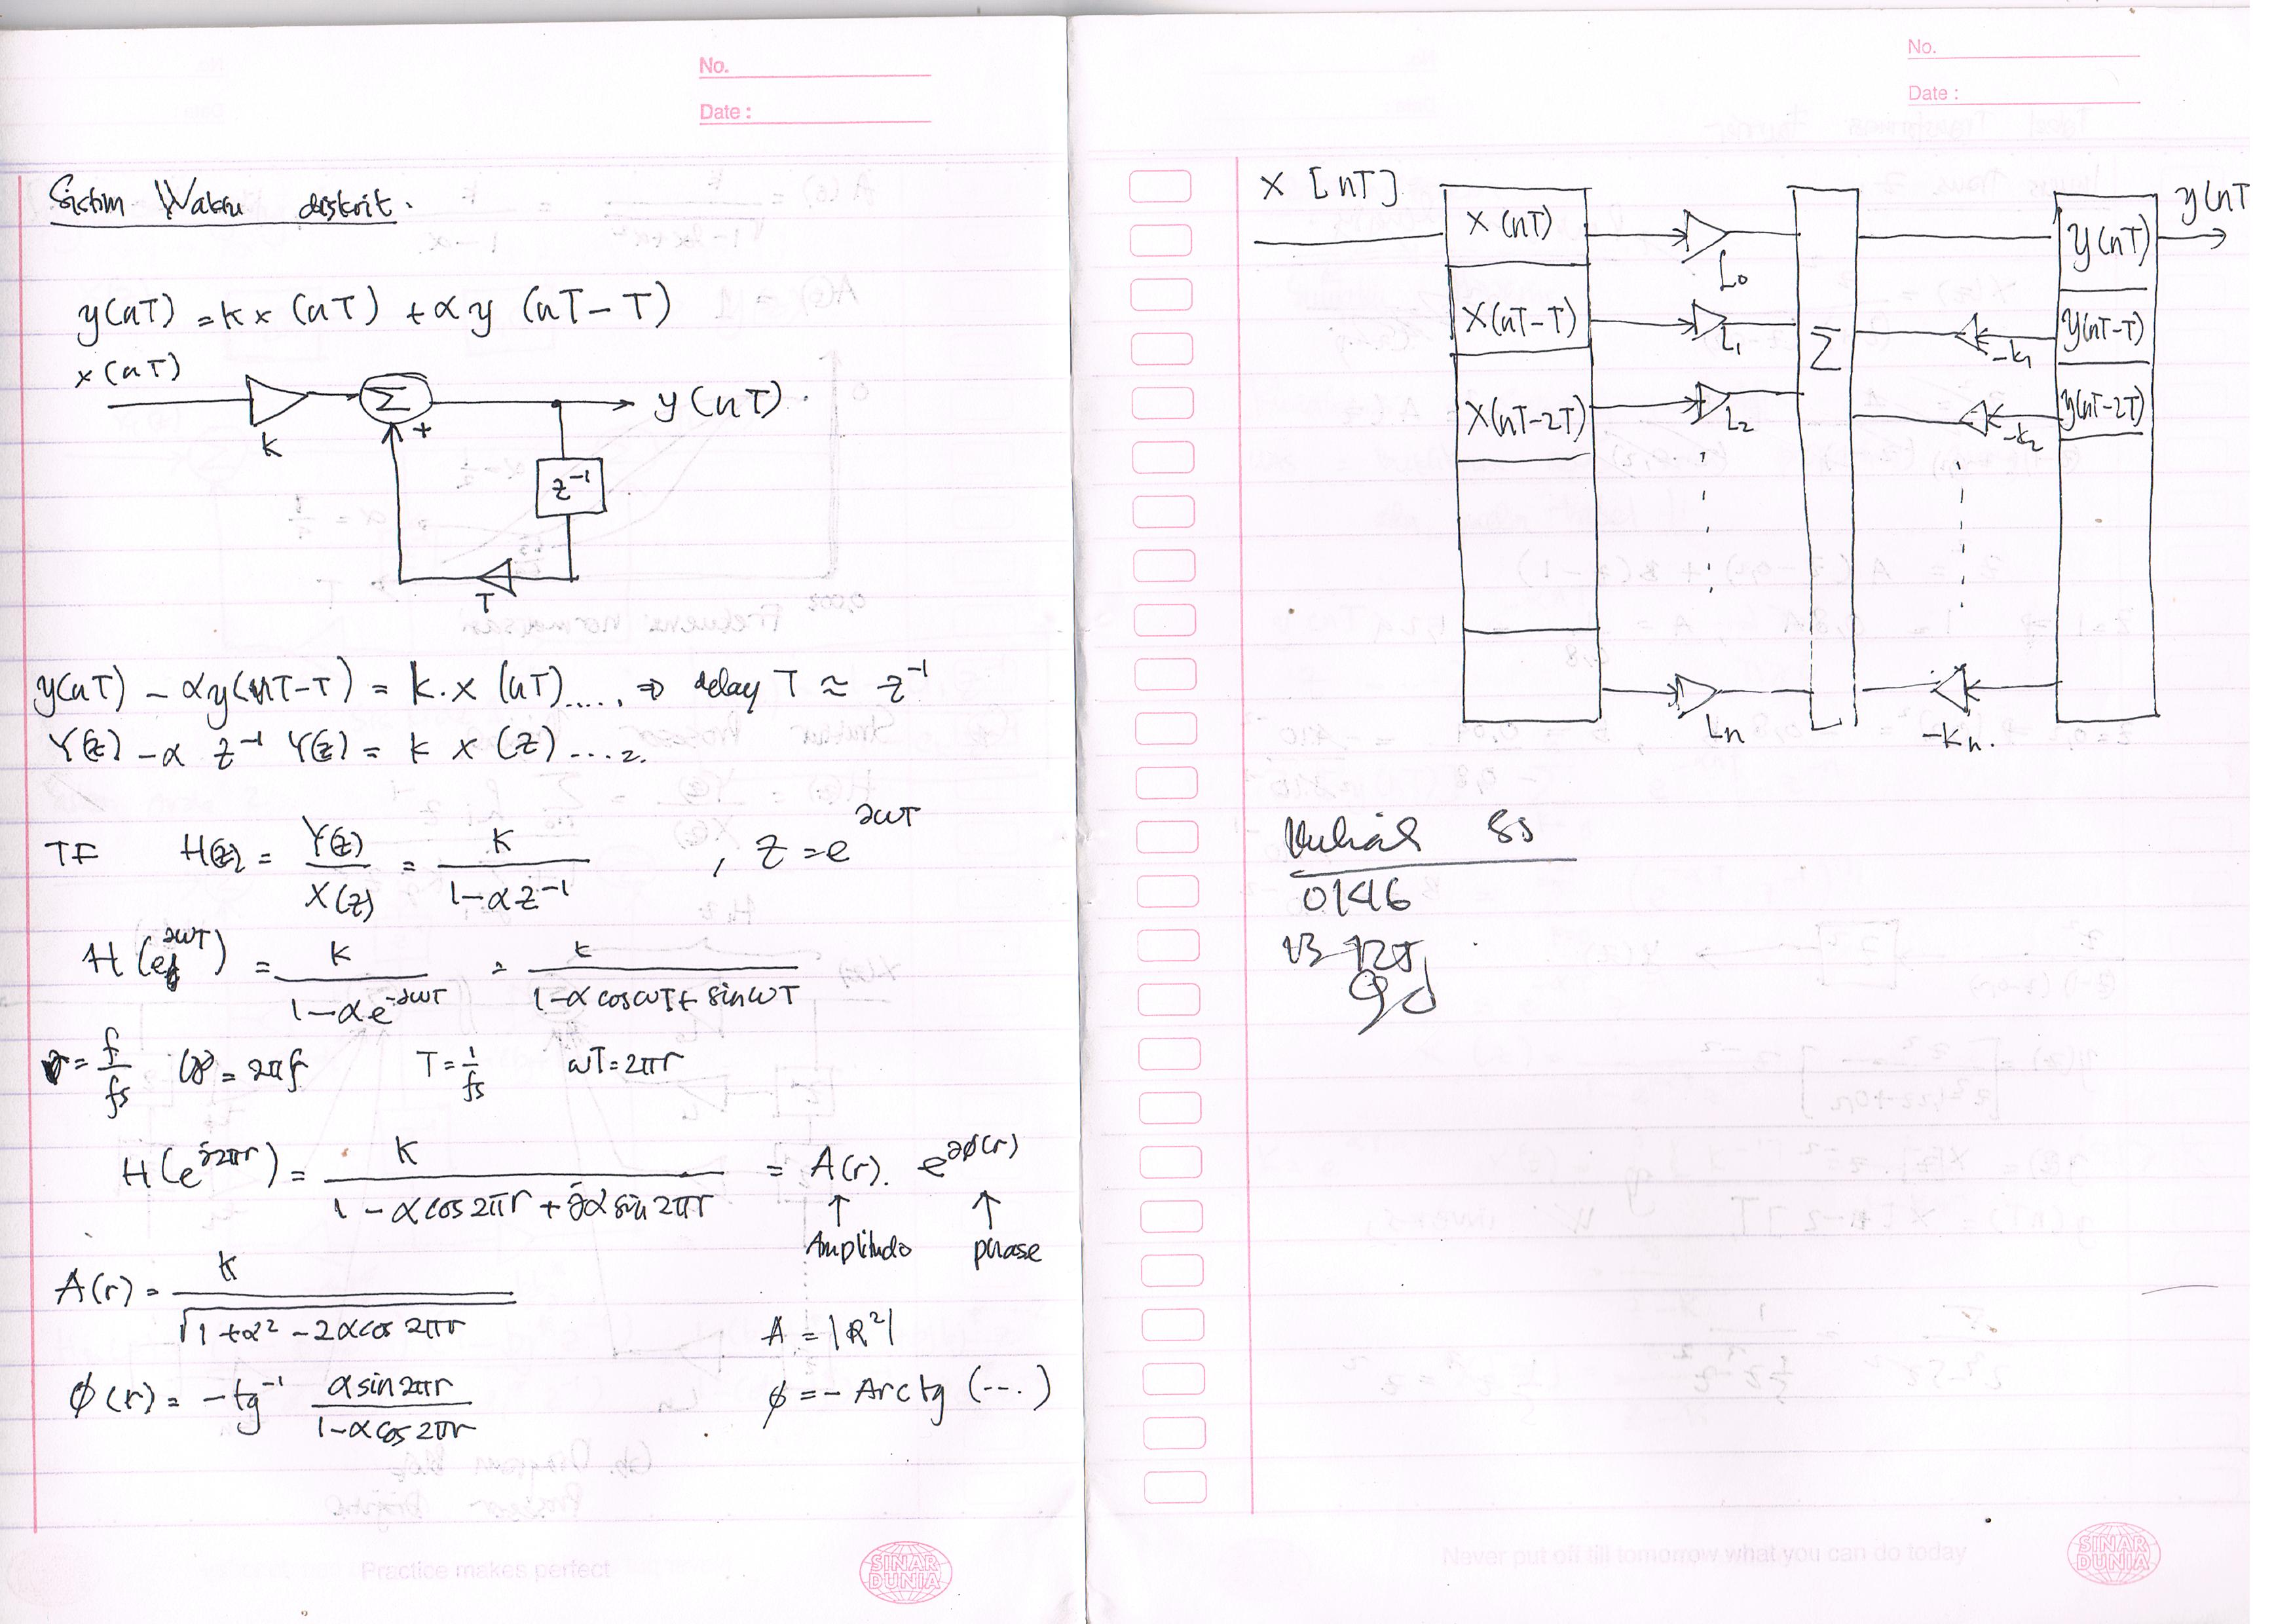 No.
Date :
Sistim Waktu diskrit.
y(nT) = kx (nT) + αy (nT-T)
x(nT)
K
Σ
+
y(nT)
z⁻¹
T
y(nT) - αy(nT-T) = k.x (nT)..... ⇒ delay T ≈ z⁻¹
Y(z) - α z⁻¹ Y(z) = k x (z) ....2.
TF H(z) = Y(z)/X(z) = K/(1-αz⁻¹) , z = e^jωT
H(e^jωT) = K/(1-αe^-jωT) = K/(1-α cos ωT + sin ωT)
r = f/fs ω = 2πf T = 1/fs ωT = 2πr
H(e^j2πr) = K/(1 - α cos 2πr + jα sin 2πr) = A(r). e^jφ(r)
↑ ↑
Amplitudo phase
A(r) = K/√(1+α² - 2α cos 2πr)
A = |R²|
φ(r) = -tg⁻¹ (α sin 2πr)/(1-α cos 2πr)
φ = - Arc tg (...)
Practice makes perfect
SINAR DUNIA
No.
Date :
X [nT]
X (nT)
L0
y(nT)
y(nT
X(nT-T)
L1
Σ
-k1
y(nT-T)
X(nT-2T)
L2
-k2
y(nT-2T)
Ln
-kn.
0146
Never put off till tomorrow what you can do today
SINAR DUNIA